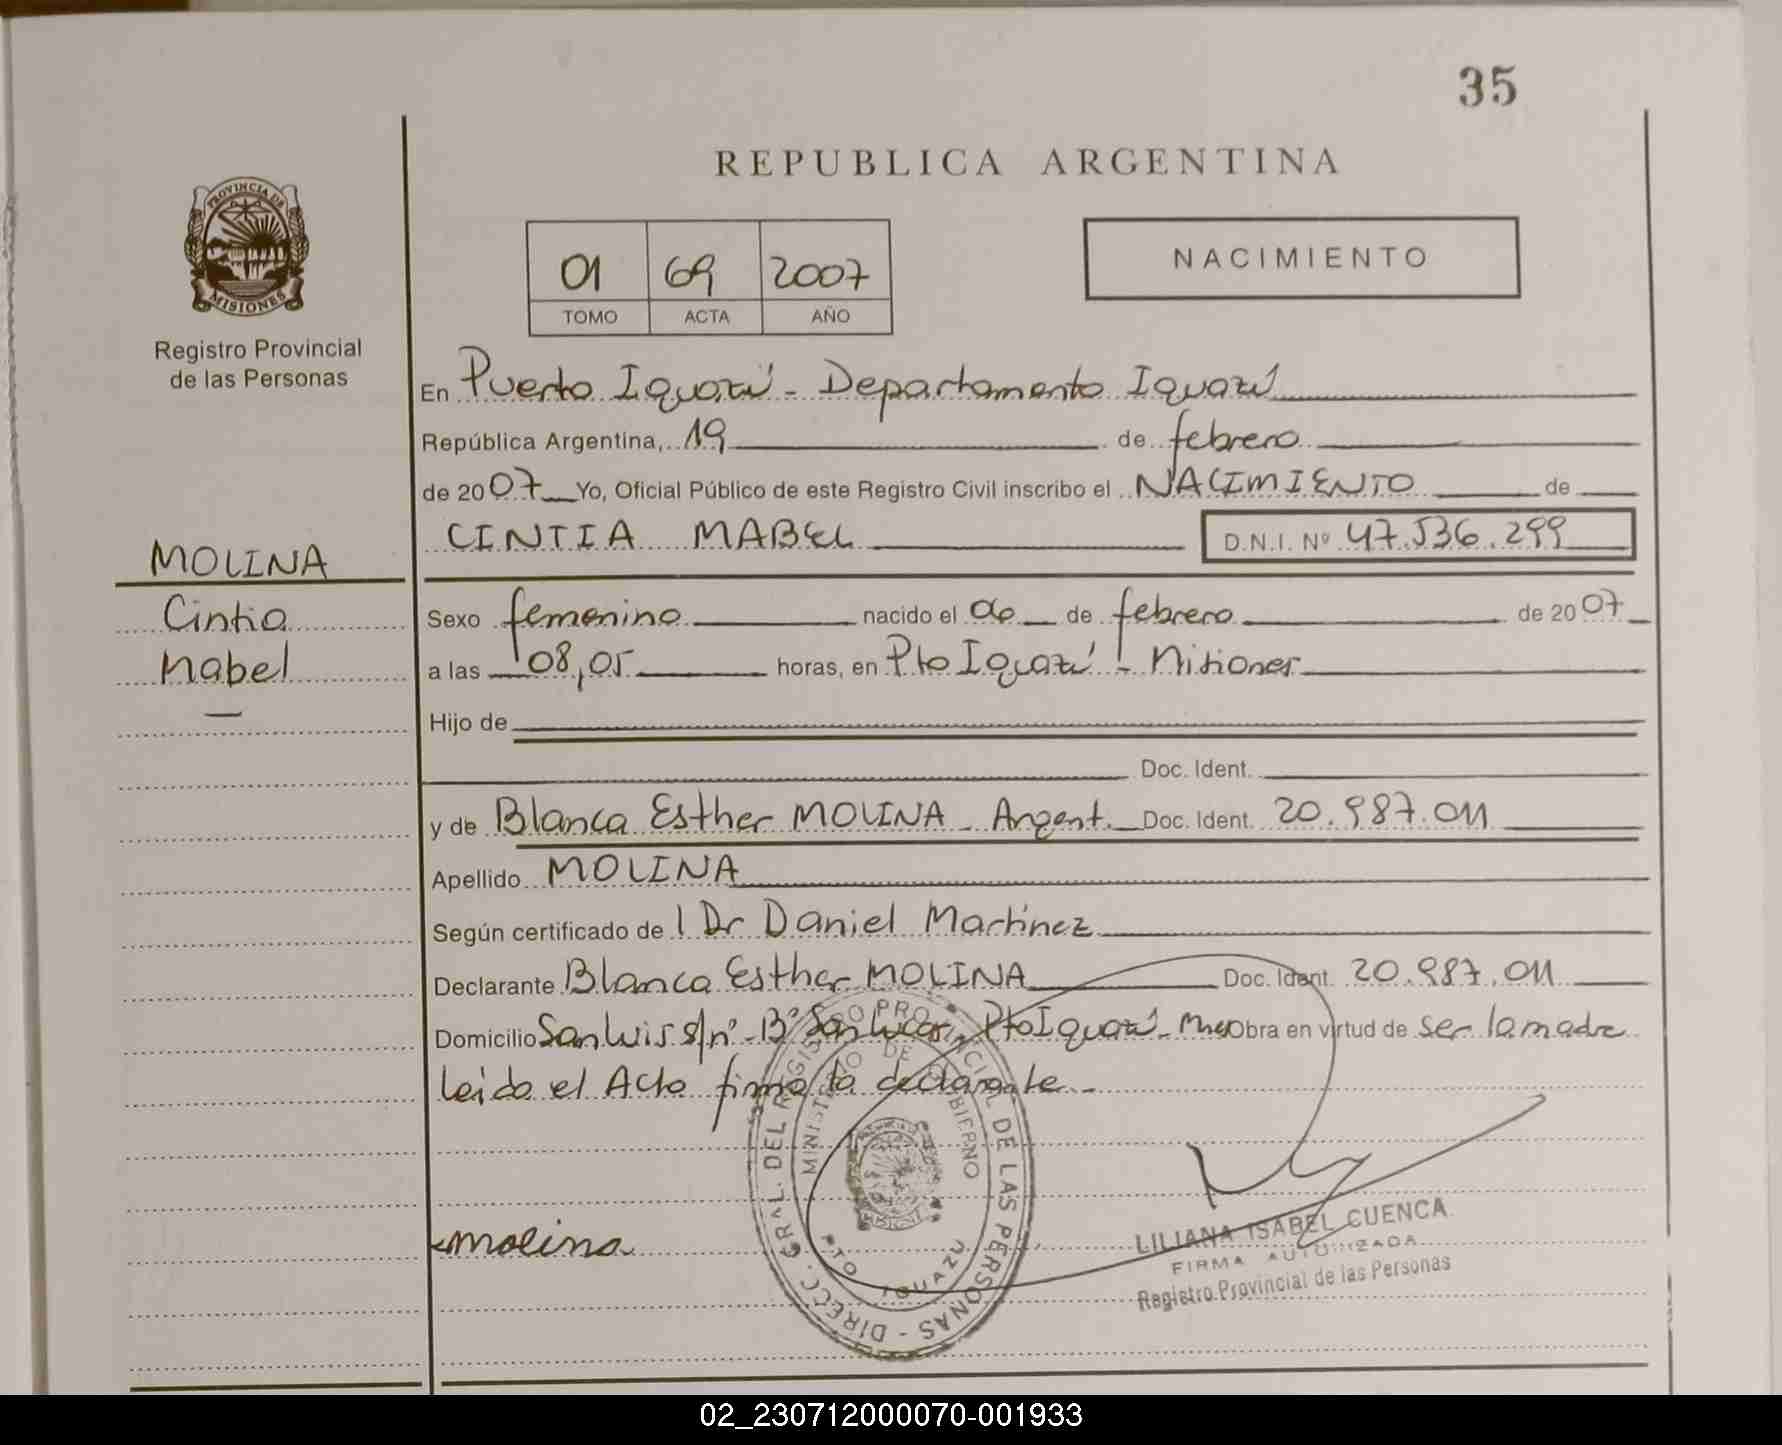 35
REPUBLICA ARGENTINA
PROVINCIA DE
MISIONES
Registro Provincial
de las Personas
01 69 2007
TOMO ACTA AÑO
NACIMIENTO
En Puerto Iguazú - Departamento Iguazú
República Argentina, 19 de febrero
de 2007 Yo, Oficial Público de este Registro Civil inscribo el NACIMIENTO de
CINTIA MABEL D.N.I. Nº 47.536.299
MOLINA
Cintia
Mabel
Sexo femenino nacido el 06 de febrero de 2007
a las 08,05 horas, en Pto Iguazú - Misiones
Hijo de
Doc. Ident.
y de Blanca Esther MOLINA - Argent. Doc. Ident. 20.987.011
Apellido MOLINA
Según certificado de l Dr Daniel Martínez
Declarante Blanca Esther MOLINA Doc. Ident. 20.987.011
Domicilio San Luis s/nº - Bº San Lucas, Pto Iguazú - Mnes Obra en virtud de ser la madre
Leida el Acta firma la declarante -
DIRECC. GRAL. DEL REGISTRO PROVINCIAL DE LAS PERSONAS
MINISTERIO DE GOBIERNO
PTO IGUAZU
Molina
LILIANA ISABEL CUENCA
FIRMA AUTORIZADA
Registro Provincial de las Personas
02_230712000070-001933